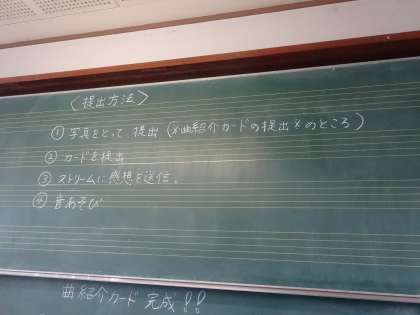 〈提出方法〉
① 写真をとって提出 (※曲紹介カードの提出※のところ)
② カードを提出
③ ストリームに感想を送信。
④ 音あそび
曲紹介カード 完成!!